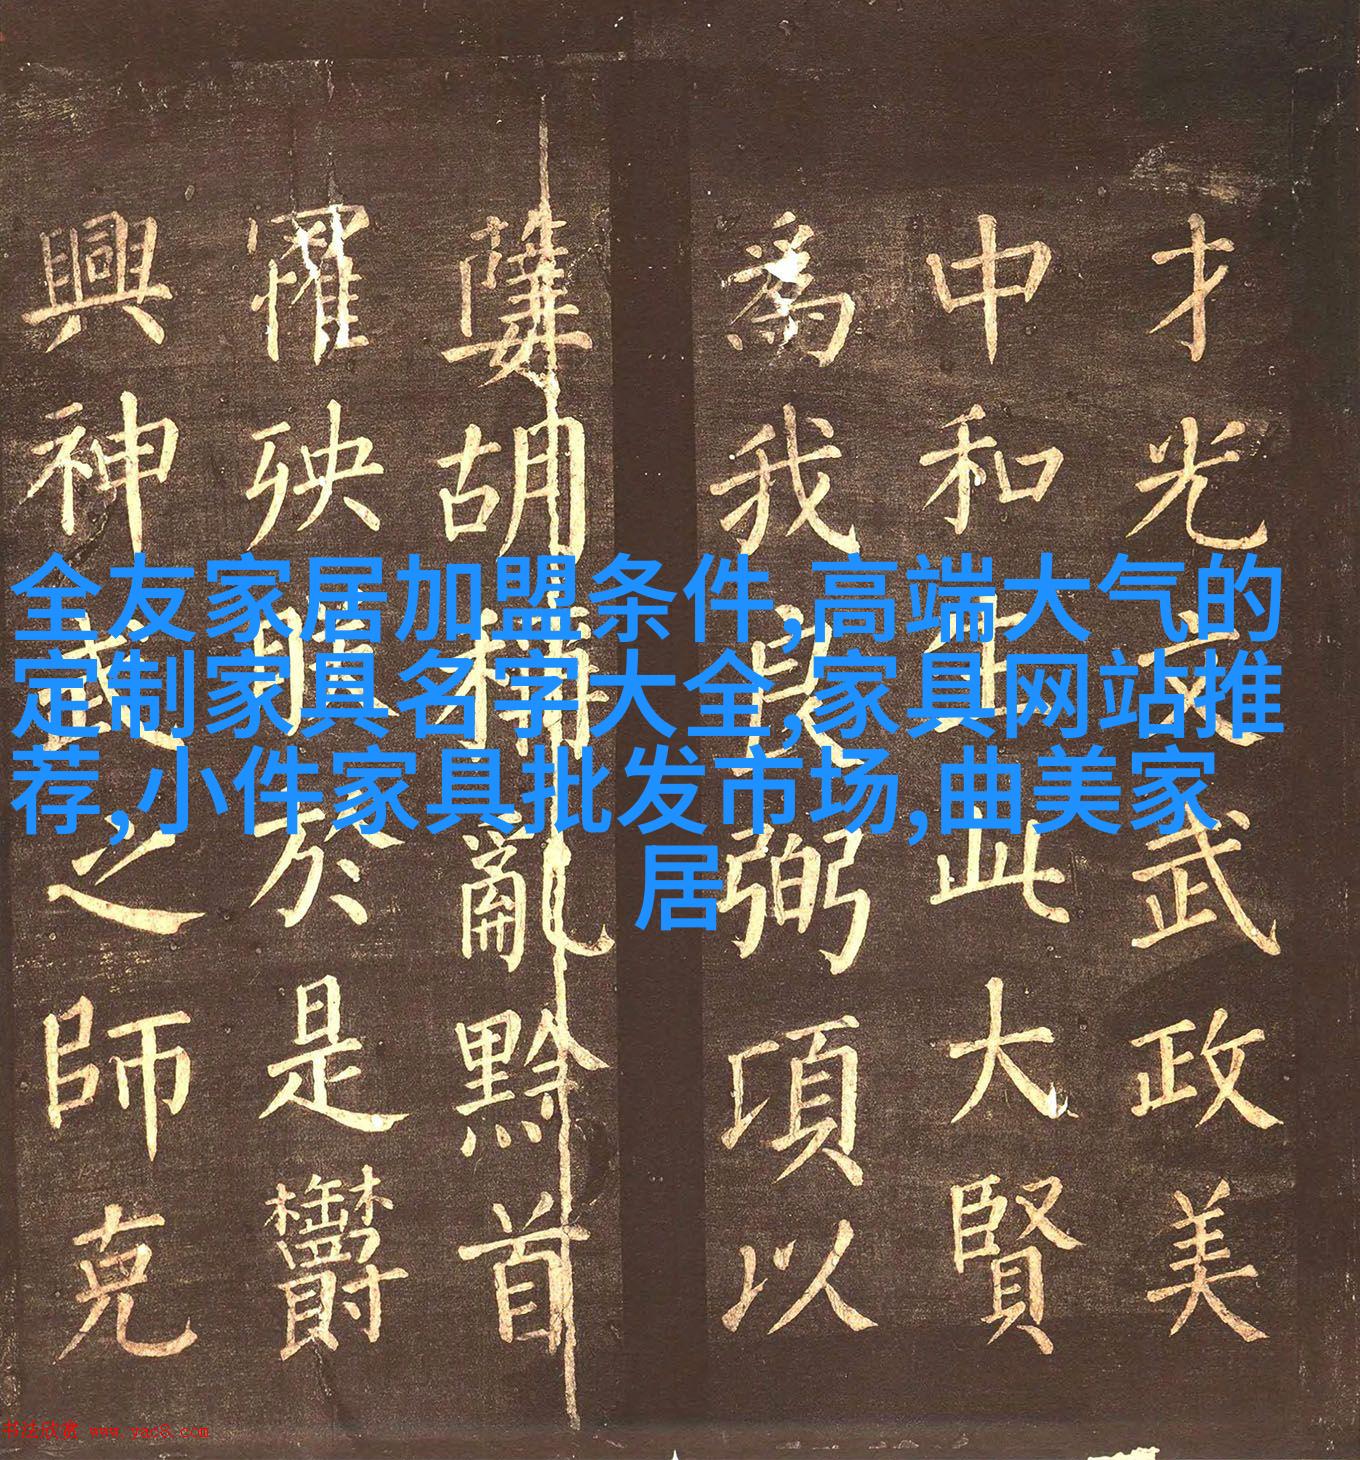 全友家居加盟条件,高端大气的
定制家具名字大全,家具网站推
荐,小件家具批发市场,曲美家
居
才光武政美
中和此大賢
為我弼項以
胡稱亂黔首
罹殃於是
興神武之師克
书法欣赏 www.yac8.com